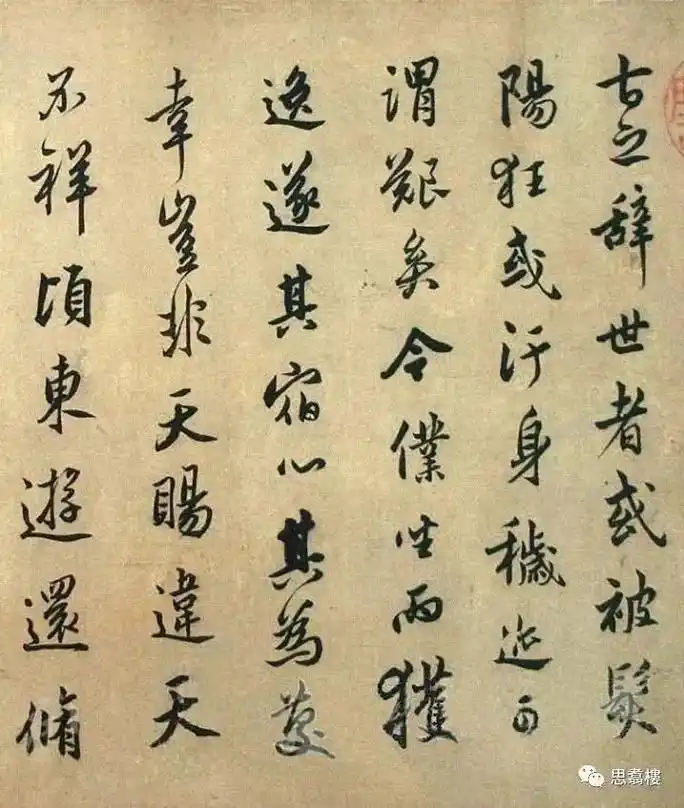 古之辞世者或被髮
陽狂或汙身穢迹可
謂艱矣今僕坐而獲
逸遂其宿心其為慶
幸豈非天賜違天
不祥頃東遊還脩
思翥樓